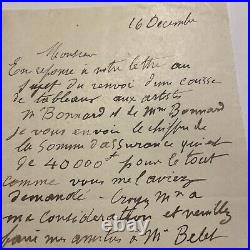 16 Decembre
Monsieur
En reponse à votre lettre au
sujet du renvoi d'une caisse
de tableaux aux artistes
Mr Bonnard et de Mme Bonnard
je vous envoie le chiffre de
la somme d'assurance qui est
de 40000 pour le tout
comme vous me l'aviez
demandé. Croyez Mr a
ma considération et veuillez
faire mes amitiés à Mr Belet